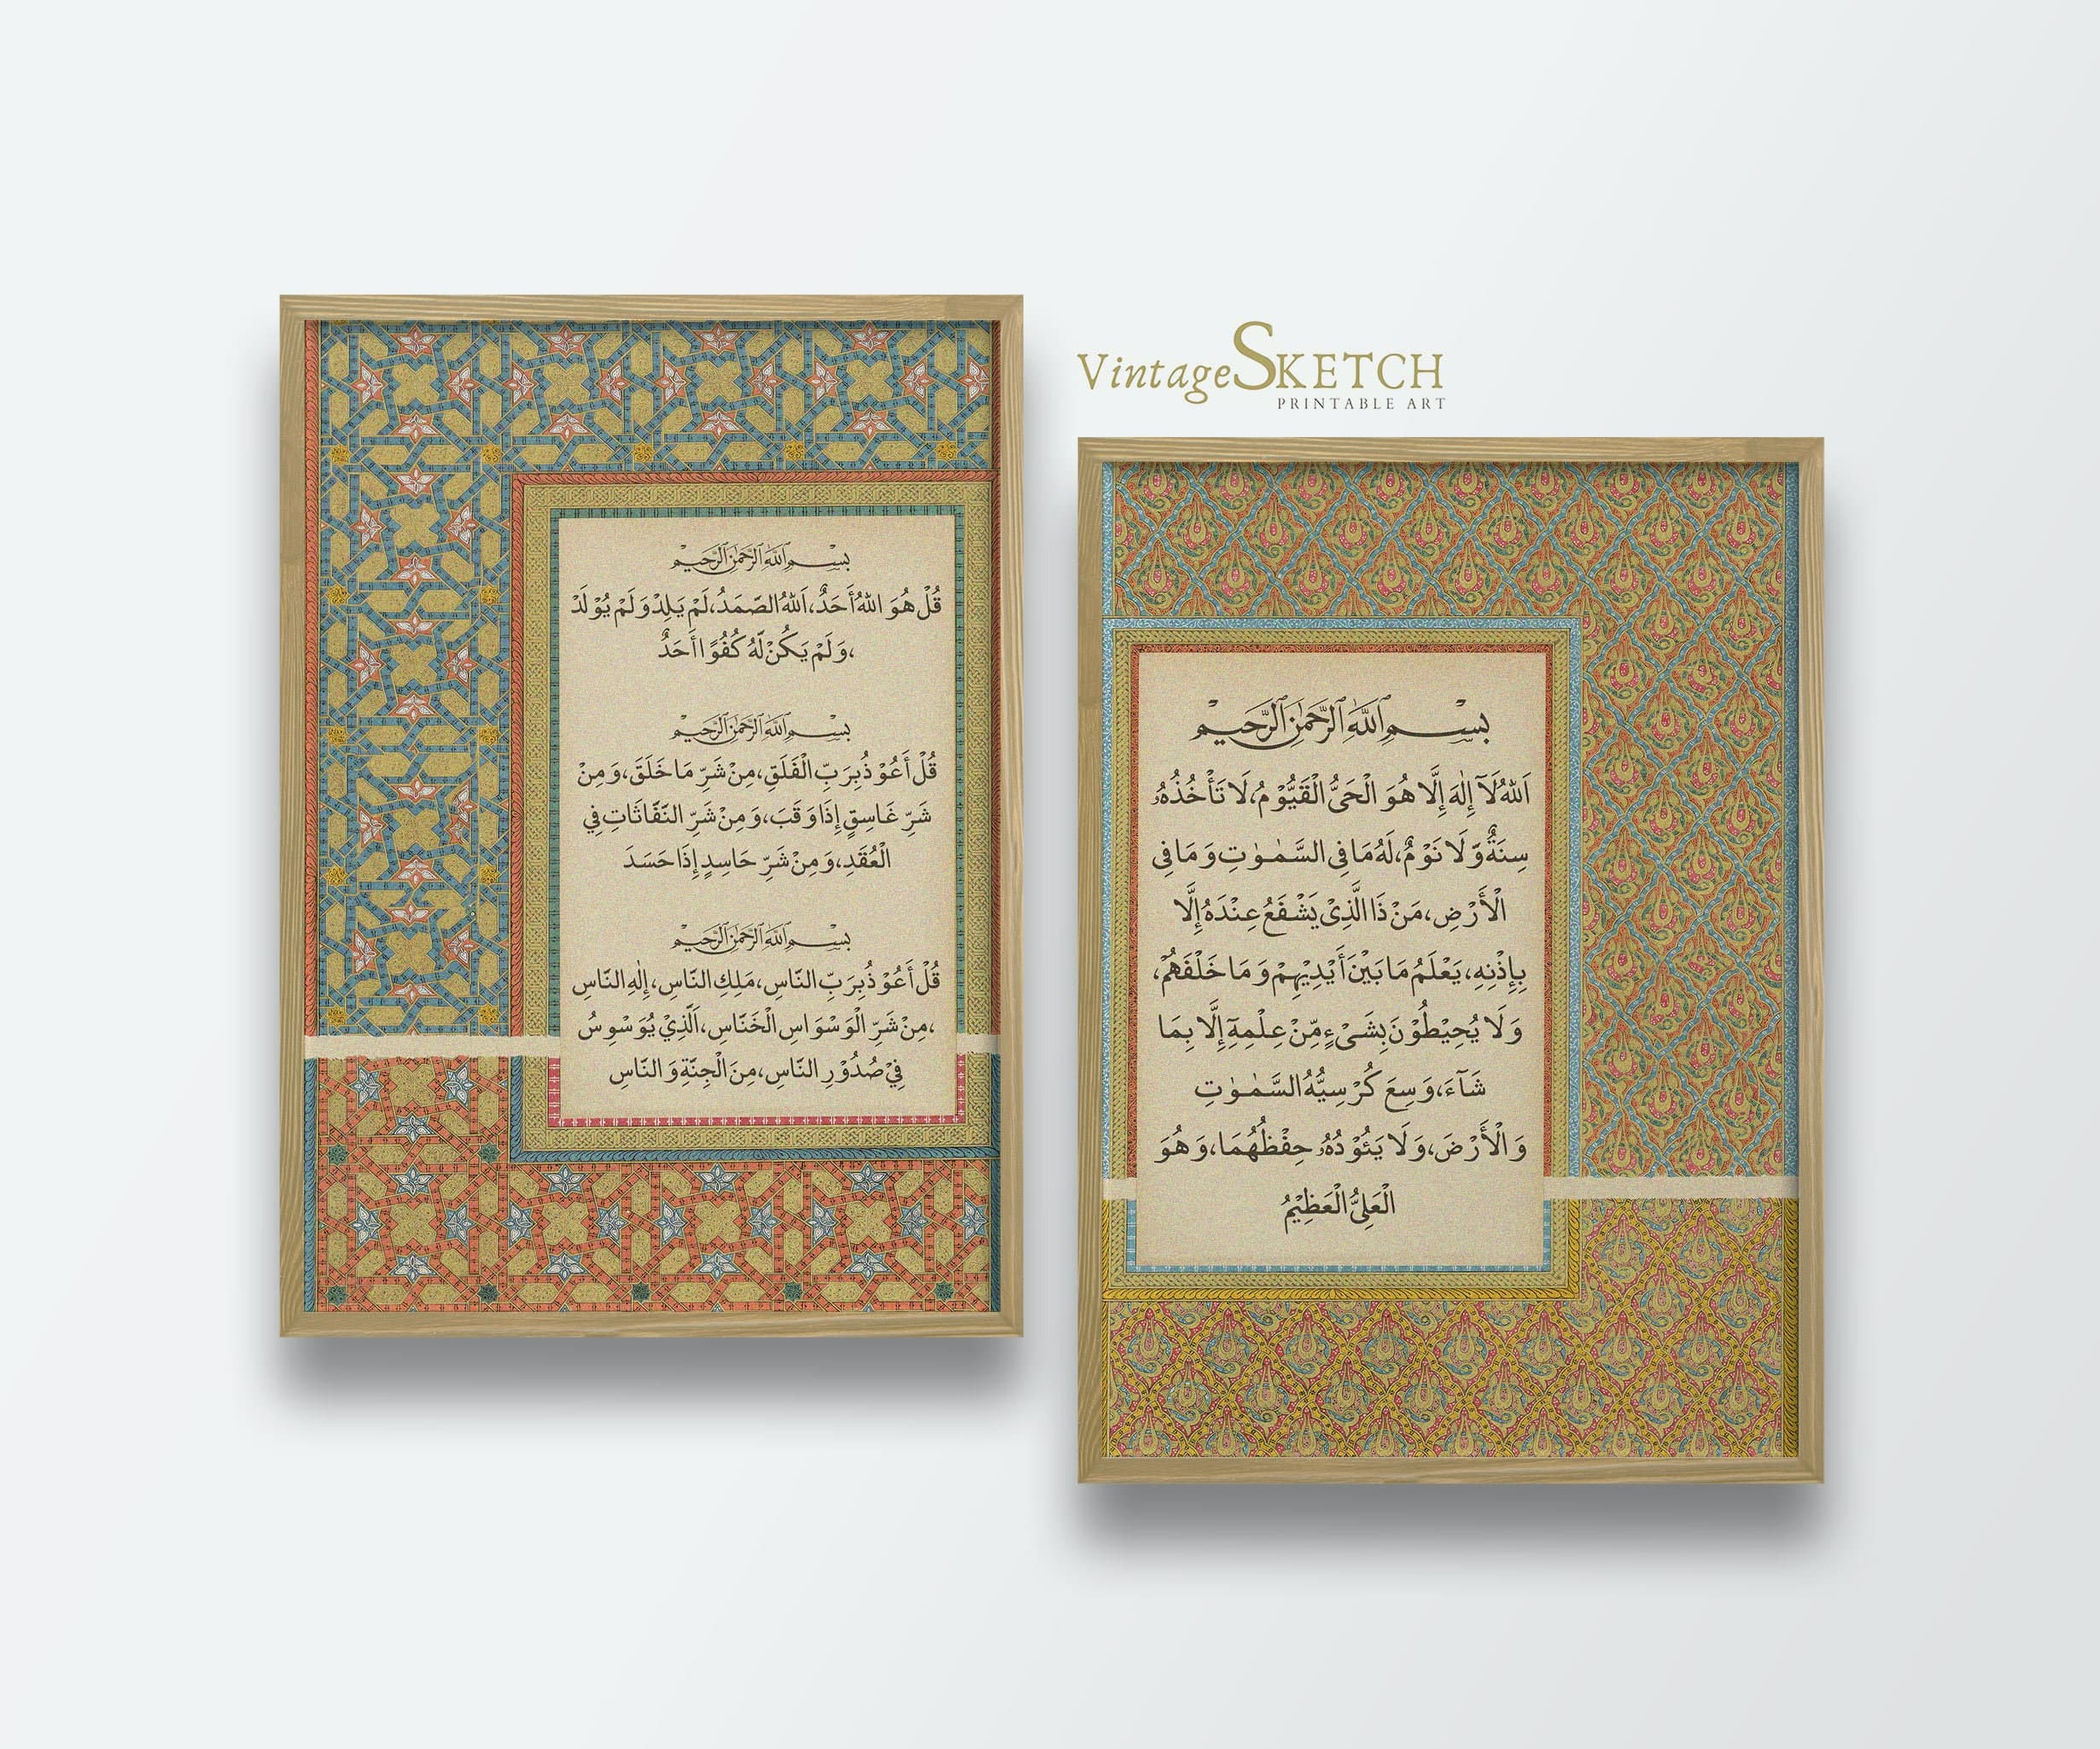 VintageSKETCH
PRINTABLE ART
بسم الله الرحمن الرحيم
قُلْ هُوَ اللهُ أَحَدٌ، اَللهُ الصَّمَدُ، لَمْ يَلِدْ وَلَمْ يُوْلَدْ
،وَلَمْ يَكُنْ لَّهُ كُفُوًا أَحَدٌ
بسم الله الرحمن الرحيم
قُلْ أَعُوْذُ بِرَبِّ الْفَلَقِ، مِنْ شَرِّ مَا خَلَقَ، وَمِنْ
شَرِّ غَاسِقٍ إِذَا وَقَبَ، وَمِنْ شَرِّ النَّفَّاثَاتِ فِي
الْعُقَدِ، وَمِنْ شَرِّ حَاسِدٍ إِذَا حَسَدَ
بسم الله الرحمن الرحيم
قُلْ أَعُوْذُ بِرَبِّ النَّاسِ، مَلِكِ النَّاسِ، إِلٰهِ النَّاسِ
،مِنْ شَرِّ الْوَسْوَاسِ الْخَنَّاسِ، اَلَّذِيْ يُوَسْوِسُ
فِيْ صُدُوْرِ النَّاسِ، مِنَ الْجِنَّةِ وَ النَّاسِ
بسم الله الرحمن الرحيم
اَللهُ لَآ إِلٰهَ إِلَّا هُوَ الْحَىُّ الْقَيُّوْمُ، لَا تَأْخُذُهُ
سِنَةٌ وَّلَا نَوْمٌ، لَهُ مَا فِى السَّمٰوٰتِ وَمَا فِى
الْأَرْضِ، مَنْ ذَا الَّذِىْ يَشْفَعُ عِنْدَهُ إِلَّا
بِإِذْنِهِ، يَعْلَمُ مَا بَيْنَ أَيْدِيهِمْ وَمَا خَلْفَهُمْ،
وَلَا يُحِيْطُوْنَ بِشَىْءٍ مِّنْ عِلْمِهِٓ إِلَّا بِمَا
شَآءَ، وَسِعَ كُرْسِيُّهُ السَّمٰوٰتِ
وَالْأَرْضَ، وَلَا يَئُوْدُهُ حِفْظُهُمَا، وَهُوَ
الْعَلِىُّ الْعَظِيْمُ